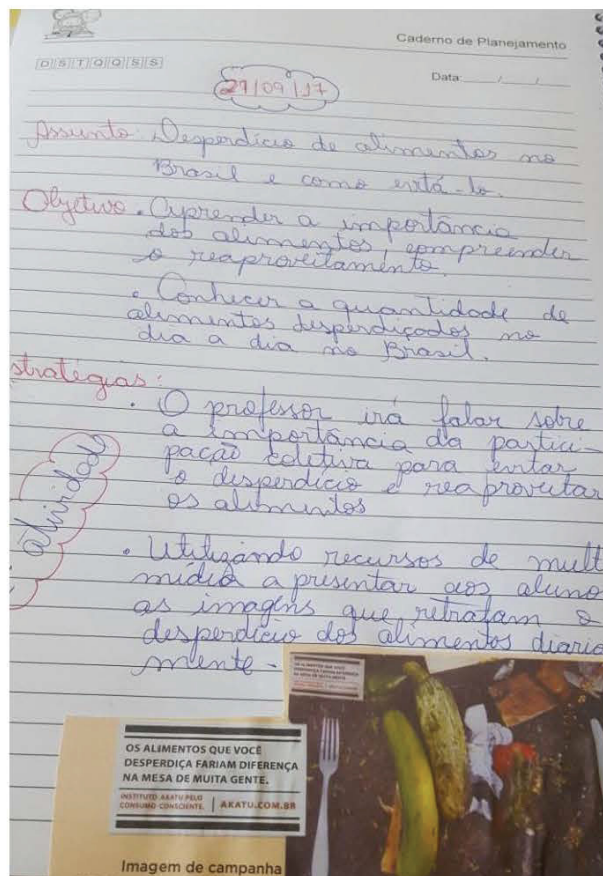 Caderno de Planejamento
D S T Q Q S S
Data: / /
29/09/17
Assunto: Desperdício de alimentos no
Brasil e como evitá-lo.
Objetivo. Aprender a importância
dos alimentos, compreender
o reaproveitamento.
. Conhecer a quantidade de
alimentos desperdiçados no
dia a dia no Brasil.
stratégias:
. O professor irá falar sobre
a importância da partici-
pação coletiva para evitar
o desperdício e reaproveitar
os alimentos
atividade
. Utilizando recursos de mult
mídia apresentar aos aluno
as imagens que retratam o
desperdício dos alimentos diaria
mente.
OS ALIMENTOS QUE VOCÊ
DESPERDIÇA FARIAM DIFERENÇA
NA MESA DE MUITA GENTE.
OS ALIMENTOS QUE VOCÊ
DESPERDIÇA FARIAM DIFERENÇA
NA MESA DE MUITA GENTE.
INSTITUTO AKATU PELO
CONSUMO CONSCIENTE. | AKATU.COM.BR
Imagem de campanha